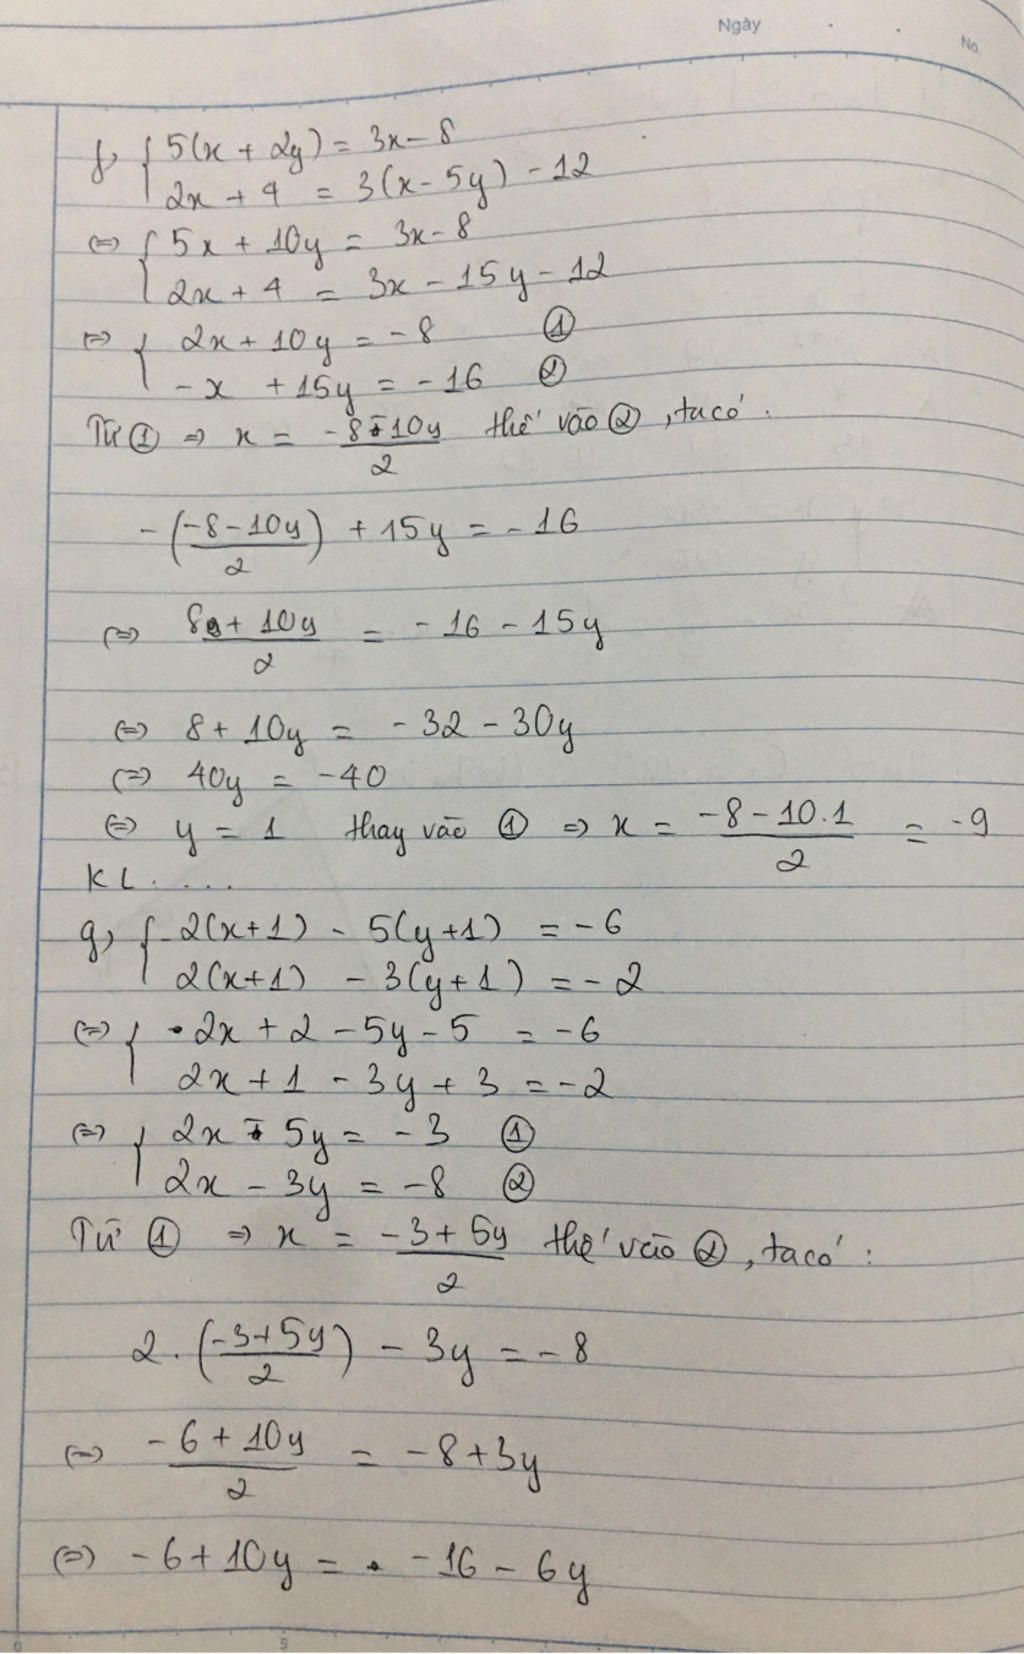 Ngày
No.
f, { 5(x + 2y) = 3x - 8
2x + 4 = 3(x - 5y) - 12
⇔ { 5x + 10y = 3x - 8
2x + 4 = 3x - 15y - 12
⇔ { 2x + 10y = -8 ①
-x + 15y = -16 ②
Từ ① ⇒ x = (-8 - 10y)/2 thế vào ②, ta có:
-((-8 - 10y)/2) + 15y = -16
⇔ (8 + 10y)/2 = -16 - 15y
⇔ 8 + 10y = -32 - 30y
⇔ 40y = -40
⇔ y = 1 thay vào ① ⇒ x = (-8 - 10.1)/2 = -9
KL.....
g, { 2(x+1) - 5(y+1) = -6
2(x+1) - 3(y+1) = -2
⇔ { 2x + 2 - 5y - 5 = -6
2x + 1 - 3y + 3 = -2
⇔ { 2x - 5y = -3 ①
2x - 3y = -8 ②
Từ ① ⇒ x = (-3 + 5y)/2 thế vào ②, ta có:
2.((-3+5y)/2) - 3y = -8
⇔ (-6 + 10y)/2 = -8 + 3y
⇔ -6 + 10y = -16 - 6y
0 5